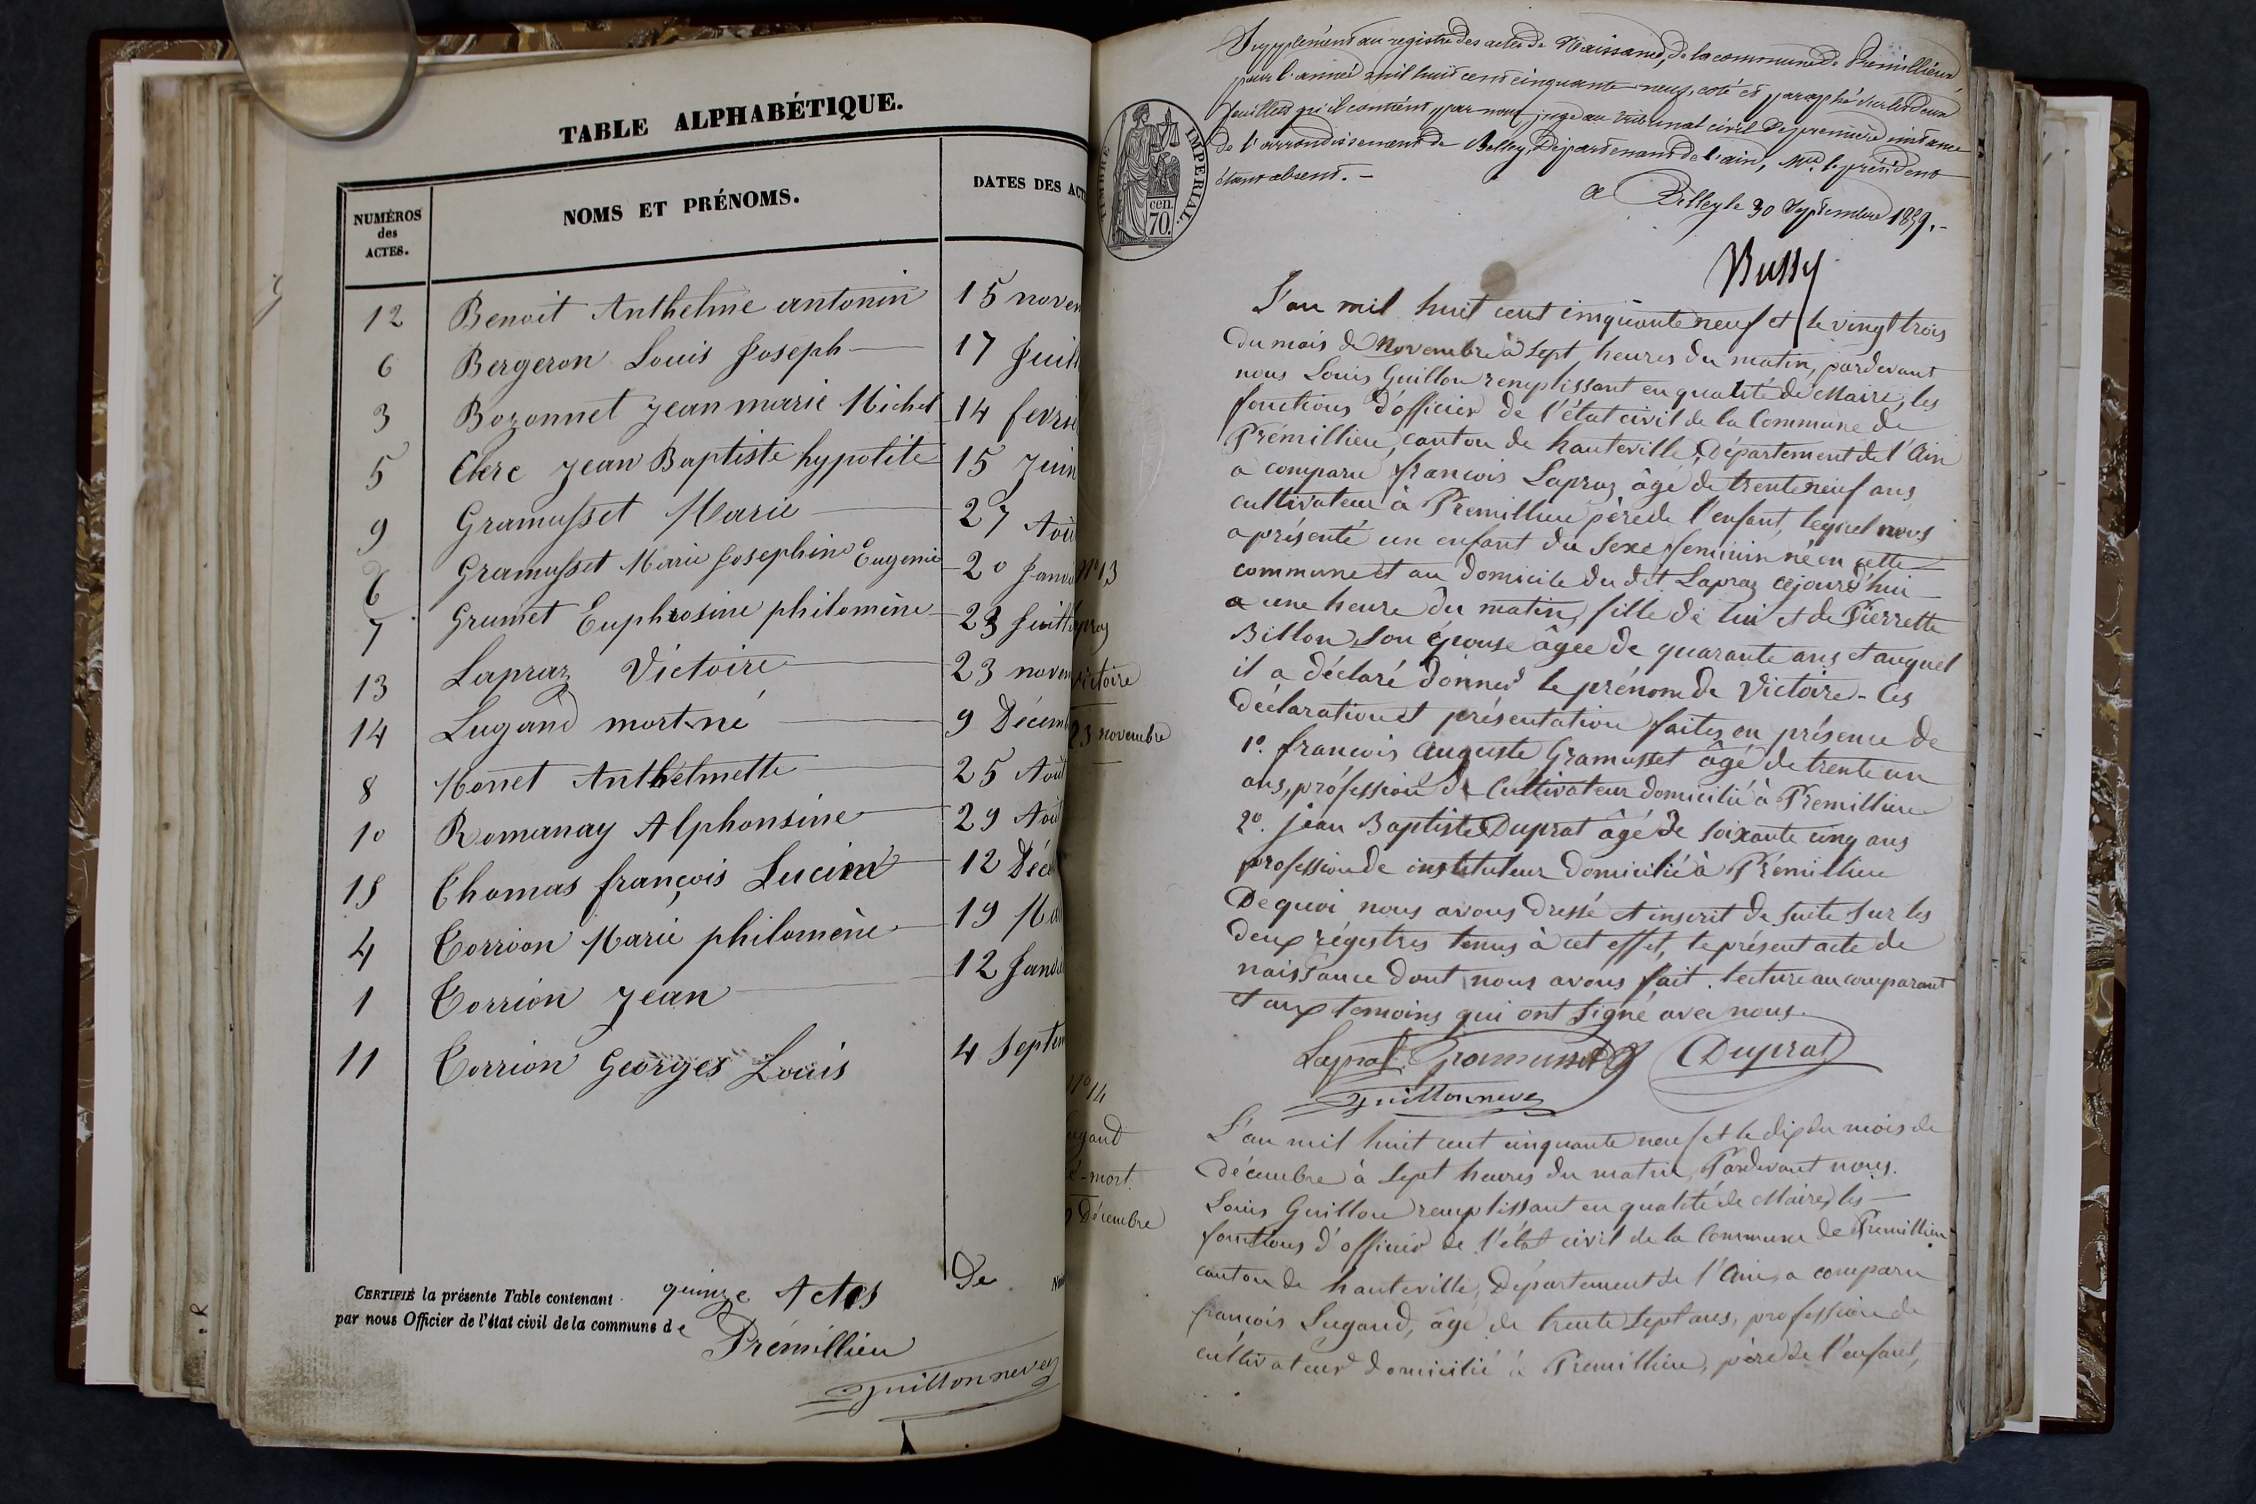 TABLE ALPHABÉTIQUE.
NUMÉROS des ACTES.
NOMS ET PRÉNOMS.
DATES DES ACT
12 Benoit Anthelme antonin 15 novem
6 Bergeron Louis Joseph 17 Juill
3 Bozonnet Jean marie Michel 14 fevrie
5 Clerc Jean Baptiste hypolite 15 Juin
9 Gramusset Marie 27 Aoû
Gramusset Marie Josephine Eugenie 20 Janvi
7 Grumet Euphrosine philomène 23 Juill
13 Lapraz Victoire 23 novem
14 Lugand mort né 9 Décem
8 Monet Anthelmette 25 Août
10 Romanay Alphonsine 29 Août
15 Thomas françois Lucien 12 Déce
4 Torrion Marie philomène 19 Ma
1 Torrion Jean 12 Janvi
11 Torrion Georges Louis 4 Septem
CERTIFIÉ la présente Table contenant quinze Actes De
par nous Officier de l'état civil de la commune de
Prémillieu
Guillon neveu
Supplément au registre des actes de Naissance, de la commune de Prémillieu
pour l'année mil huit cent cinquante-neuf, coté et paraphé sur les deux
feuillets qu'il contient, par nous, juge au tribunal civil de première instance
de l'arrondissement de Belley, Département de l'ain, Mr. le président
étant absent. –
a Belley le 30 Septembre 1859. –
TIMBRE IMPERIAL.
70. cen.
Bussy
N° 13
Lapraz
victoire
23 novembre
L'an mil huit cent cinquante neuf et le vingt trois
du mois de Novembre à sept heures du matin, pardevant
nous Louis Guillon remplissant en qualité de Maire, les
fonctions d'officier de l'état civil de la Commune de
Prémillieu, canton de hauteville, Département de l'Ain
a comparu françois Lapraz âgé de trente neuf ans
cultivateur à Premillieu père de l'enfant, lequel nous
a présenté un enfant du sexe feminin né en cette
commune et au domicile du dit Lapraz cejourd'hui
a une heure du matin, fille de lui et de Pierrette
Billon son épouse âgée de quarante ans et auquel
il a déclaré donner le prénom de Victoire – Ces
déclaration et présentation faites en présence de
1°. françois Auguste Gramusset âgé de trente un
ans, profession de Cultivateur domicilié à Premillieu
2°. Jean Baptiste Duprat âgé de soixante cinq ans
profession de instituteur domicilié à Prémillieu
De quoi nous avons dressé et inscrit de suite sur les
deux régistres tenus à cet effet, le présent acte de
naissance dont nous avons fait lecture au comparant
et aux temoins qui ont signé avec nous.
Lapraz Gramusset Duprat
Guillon neveu
N° 14
Lugand
né-mort.
9 Décembre
L'an mil huit cent cinquante neuf et le dix du mois de
décembre à sept heures du matin, Pardevant nous.
Louis Guillon remplissant en qualité de Maire, les
fonctions d'officier de l'état civil de la Commune de Premillieu
canton de hauteville, Département de l'Ain, a comparu
françois Lugand, âgé de trente sept ans, profession de
cultivateur domicilié à Premillieu, père de l'enfant,